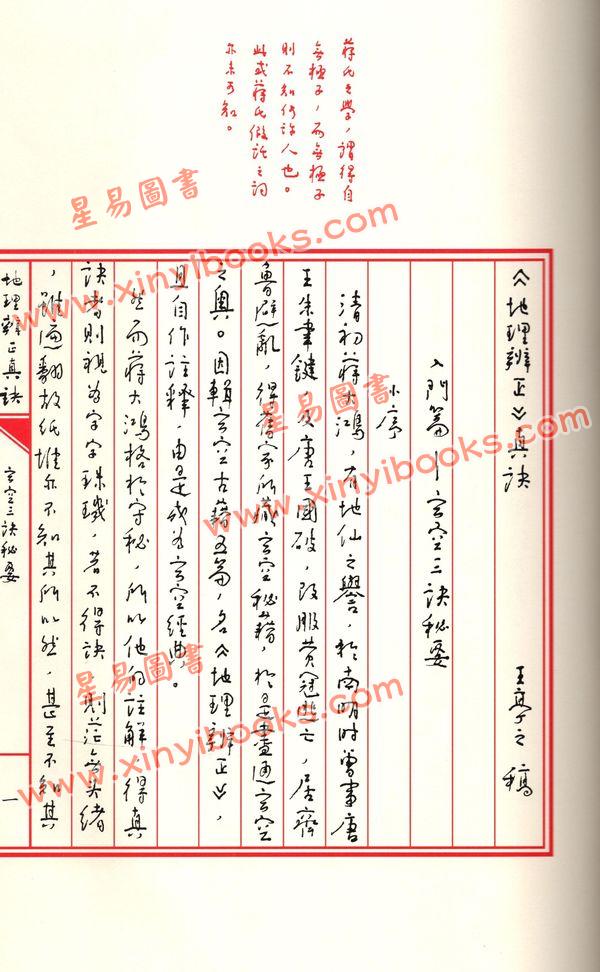 蔣氏之學，謂得自
無極子，而無極子
則不知何許人也。
此或蔣氏假託之詞
亦未可知。
《地理辨正》真訣
王亭之 稿
入門篇—玄空三訣秘要
小序
清初蔣大鴻，有地仙之譽，於南明時曾事唐
王朱聿鍵，及唐王國破，改服黃冠逃亡，居齊
魯避亂，得舊家所藏玄空秘籍，於是盡通玄空
之奧。因輯玄空古籍五篇，名《地理辨正》，
且自作註釋，由是成為玄空經典。
然而蔣大鴻格於守秘，所以他的註解，得真
訣者則視為字字珠璣，若不得訣 則茫無頭緒
，雖遍翻故紙堆亦不知其所以然，甚至不知其
地理辨正真訣
玄空三訣秘要
一
星易圖書
www.xinyibooks.com
星易圖書
www.xinyibooks.com
星易圖書
www.xinyibooks.com